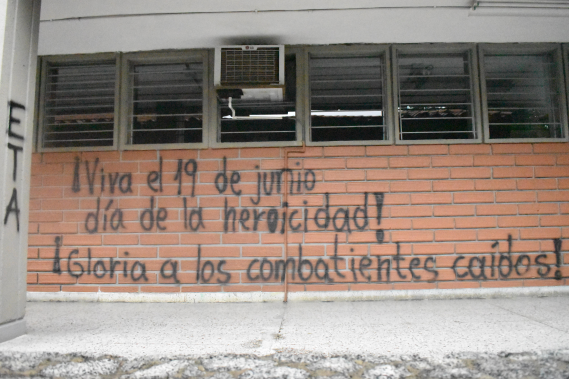 ETA
¡Viva el 19 de junio
día de la heroicidad!
¡Gloria a los combatientes caídos!